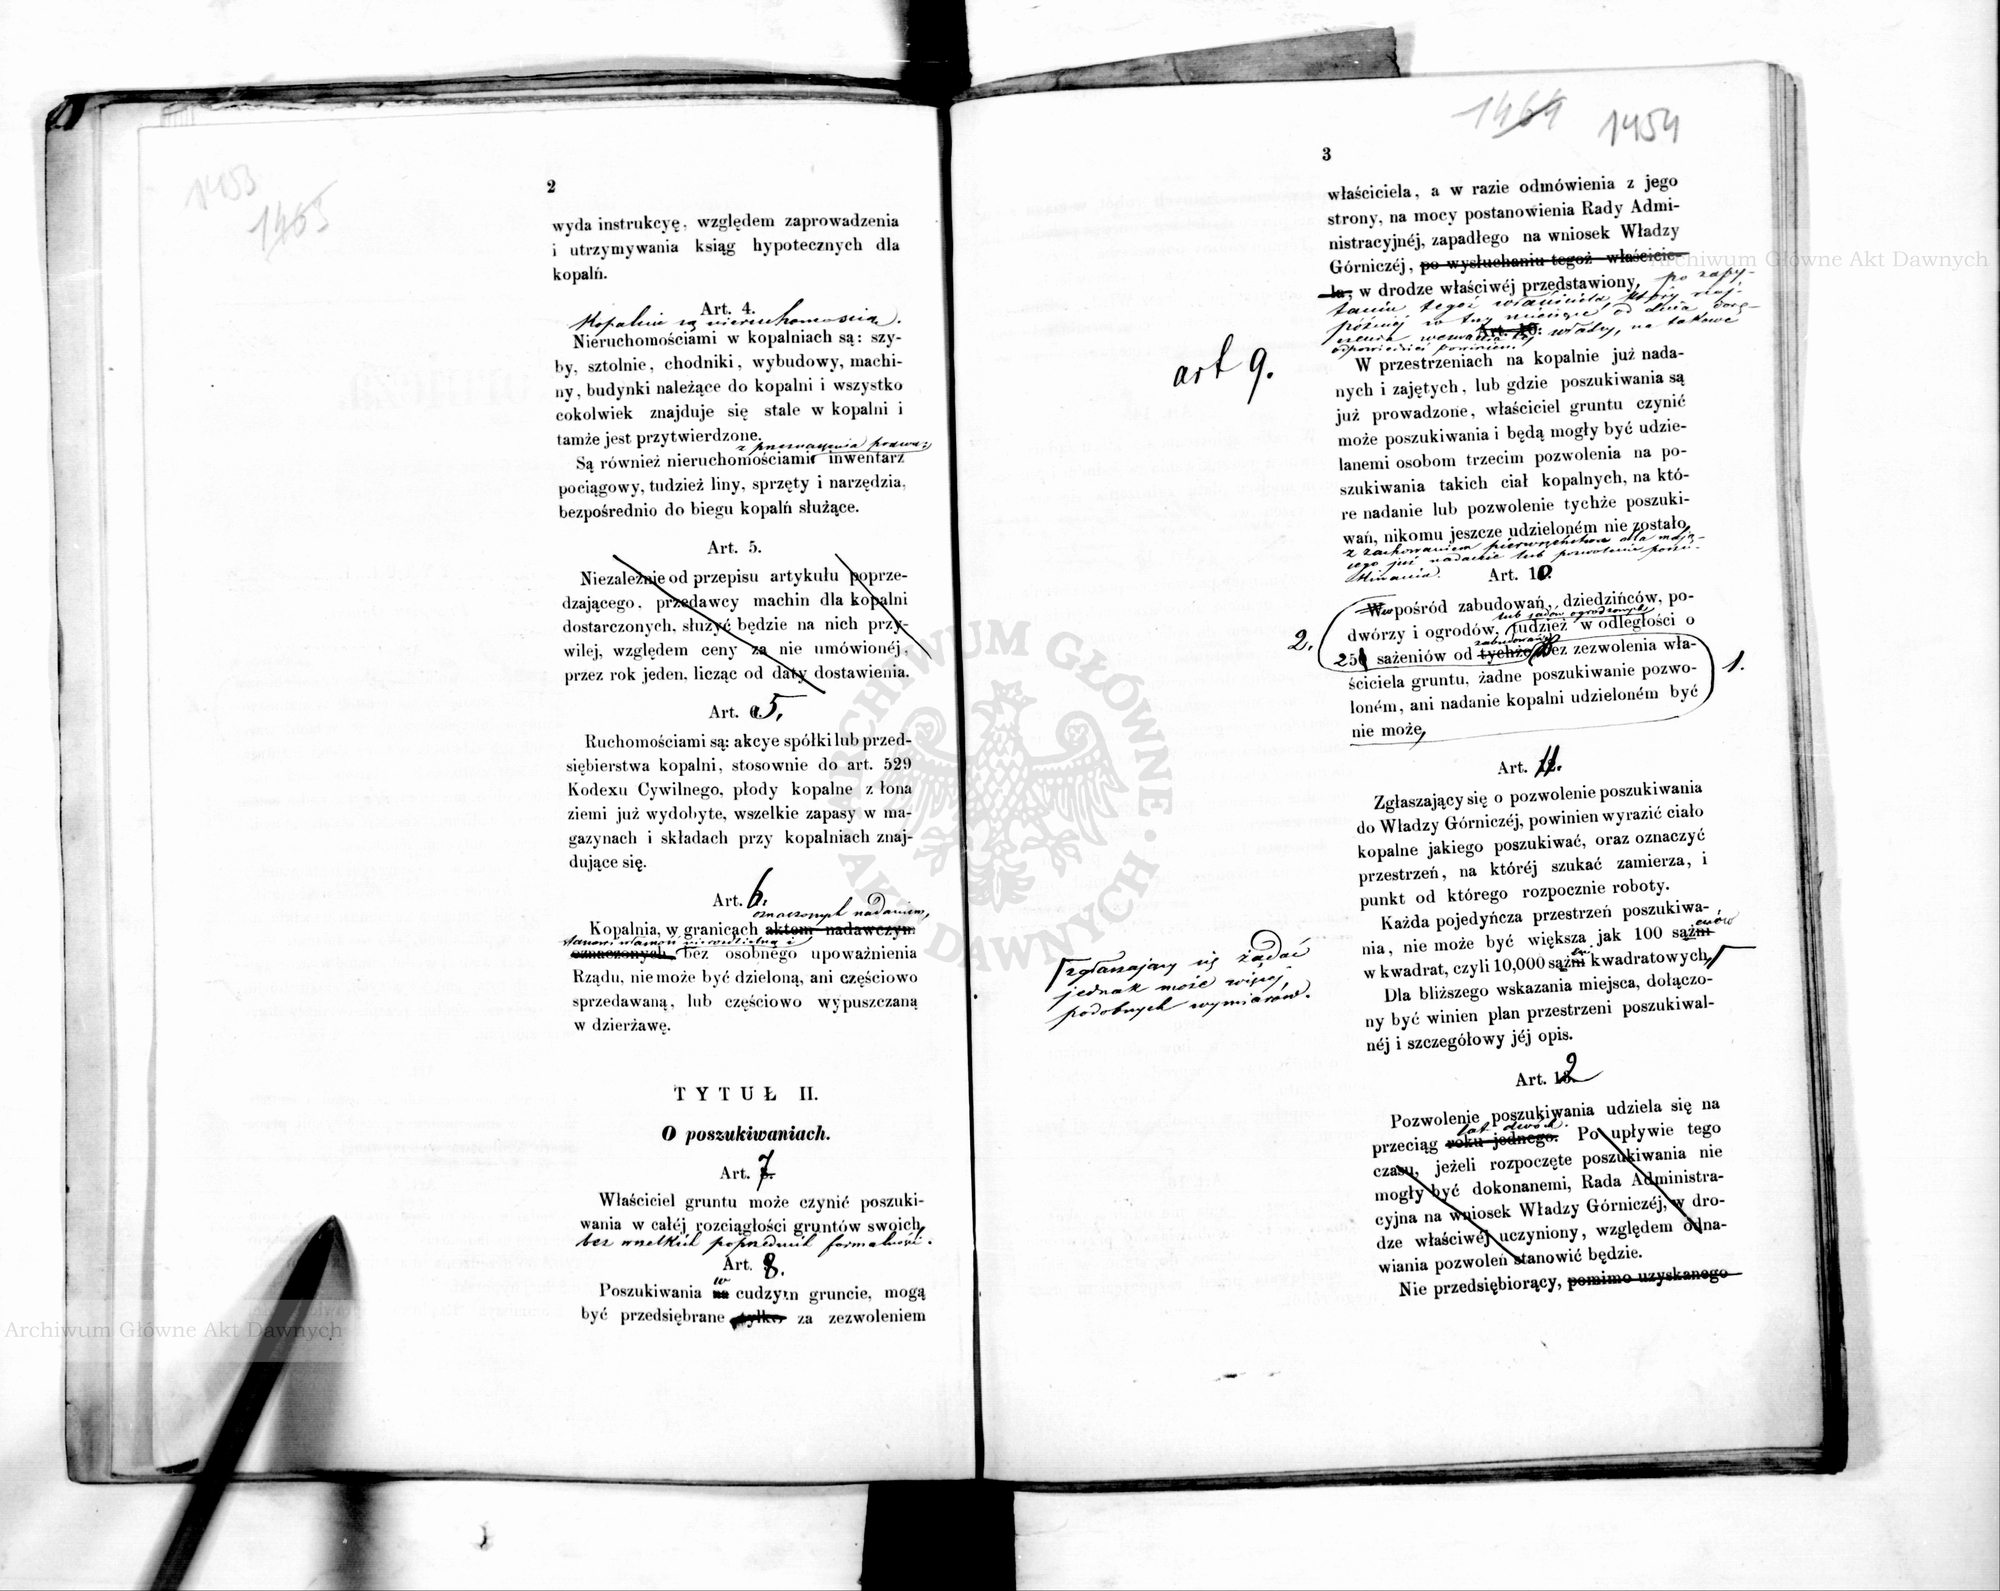 1453
1465
2
wyda instrukcyę, względem zaprowadzenia
i utrzymywania ksiąg hypotecznych dla
kopalń.
Art. 4.
Kopalnie są nieruchomością.
Nieruchomościami w kopalniach są: szy-
by, sztolnie, chodniki, wybudowy, machi-
ny, budynki należące do kopalni i wszystko
cokolwiek znajduje się stale w kopalni i
tamże jest przytwierdzone.
z przeznaczenia
Są również nieruchomościami inwentarz
pociągowy, tudzież liny, sprzęty i narzędzia,
bezpośrednio do biegu kopalń służące.
Art. 5.
Niezależnie od przepisu artykułu poprze-
dzającego, przedawcy machin dla kopalni
dostarczonych, służyć będzie na nich przy-
wilej, względem ceny za nie umówionéj,
przez rok jeden, licząc od daty dostawienia.
Art. 5.
Ruchomościami są: akcye spółki lub przed-
siębierstwa kopalni, stosownie do art. 529
Kodexu Cywilnego, płody kopalne z łona
ziemi już wydobyte, wszelkie zapasy w ma-
gazynach i składach przy kopalniach znaj-
dujące się.
Art. 6.
oznaczonych nadaniem,
Kopalnia, w granicach aktem nadawczym
stanowi własność niepodzielną i
oznaczonych, bez osobnego upoważnienia
Rządu, nie może być dzieloną, ani częściowo
sprzedawaną, lub częściowo wypuszczaną
w dzierżawę.
TYTUŁ II.
O poszukiwaniach.
Art. 7
Właściciel gruntu może czynić poszuki-
wania w całéj rozciągłości gruntów swoich,
bez wszelkich poprzednich formalności.
Art. 8.
w
Poszukiwania na cudzym gruncie, mogą
być przedsiębrane tylko za zezwoleniem
1464 1454
3
właściciela, a w razie odmówienia z jego
strony, na mocy postanowienia Rady Admi-
nistracyjnéj, zapadłego na wniosek Władzy
Górniczéj, po wysłuchaniu tegoż właścicie-
la, w drodze właściwéj przedstawiony, po zapy-
taniu tegoż właściciela, który naj-
później w trzy miesiące od dnia dorę-
czenia wezwania téj władzy, na takowe
odpowiedzieć powinien.
Art. 10.
art 9.
W przestrzeniach na kopalnie już nada-
nych i zajętych, lub gdzie poszukiwania są
już prowadzone, właściciel gruntu czynić
może poszukiwania i będą mogły być udzie-
lanemi osobom trzecim pozwolenia na po-
szukiwania takich ciał kopalnych, na któ-
re nadanie lub pozwolenie tychże poszuki-
wań, nikomu jeszcze udzieloném nie zostało,
z zachowaniem pierwszeństwa dla mają-
cego już nadanie lub pozwolenie poszu-
kiwania.
Art. 10.
Wpośród zabudowań, dziedzińców, po-
lub sadów ogrodzonych
dwórzy i ogrodów, tudzież w odległości o
zabudowań
2.
25 sażeniów od tychże, bez zezwolenia wła-
1.
ściciela gruntu, żadne poszukiwanie pozwo-
loném, ani nadanie kopalni udzieloném być
nie może,
Art. 11.
Zgłaszający się o pozwolenie poszukiwania
do Władzy Górniczéj, powinien wyrazić ciało
kopalne jakiego poszukiwać, oraz oznaczyć
przestrzeń, na któréj szukać zamierza, i
punkt od którego rozpocznie roboty.
Każda pojedyńcza przestrzeń poszukiwa-
nia, nie może być większa jak 100 sążni
w kwadrat, czyli 10,000 sążni kwadratowych,
zgłaszający się żądać
jednak może więcéj
podobnych wymiarów.
Dla bliższego wskazania miejsca, dołączo-
ny być winien plan przestrzeni poszukiwal-
néj i szczegółowy jéj opis.
Art. 12
Pozwolenie poszukiwania udziela się na
lat dwóch.
przeciąg roku jednego. Po upływie tego
czasu, jeżeli rozpoczęte poszukiwania nie
mogły być dokonanemi, Rada Administra-
cyjna na wniosek Władzy Górniczéj, w dro-
dze właściwéj uczyniony, względem odna-
wiania pozwoleń stanowić będzie.
Nie przedsiębiorący, pomimo uzyskanego
ARCHIWUM GŁÓWNE AKT DAWNYCH
Archiwum Główne Akt Dawnych
Archiwum Główne Akt Dawnych